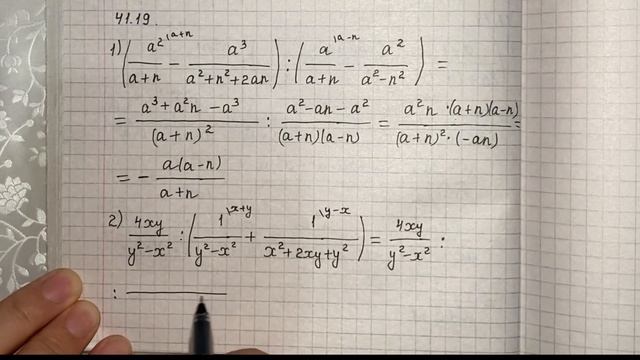 41.19.
1) (a²\ᵃ⁺ⁿ/(a+n) − a³/(a²+n²+2an)) : (a\ᵃ⁻ⁿ/(a+n) − a²/(a²−n²)) =
= (a³+a²n−a³)/(a+n)² : (a²−an−a²)/((a+n)(a−n)) = (a²n·(a+n)(a−n))/((a+n)²·(−an)) =
= − a(a−n)/(a+n)
2) 4xy/(y²−x²) : (1\ˣ⁺ʸ/(y²−x²) + 1\ʸ⁻ˣ/(x²+2xy+y²)) = 4xy/(y²−x²) :
: